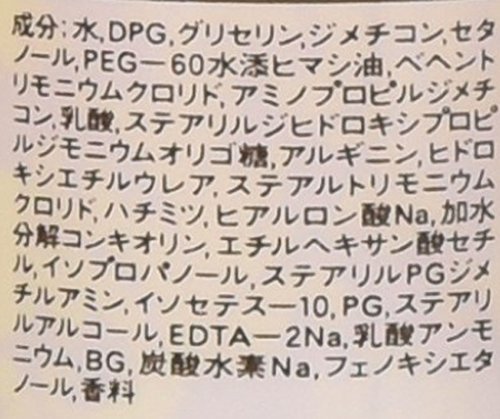 成分:水,DPG,グリセリン,ジメチコン,セタ
ノール,PEG－60水添ヒマシ油,ベヘント
リモニウムクロリド,アミノプロピルジメチ
コン,乳酸,ステアリルジヒドロキシプロピ
ルジモニウムオリゴ糖,アルギニン,ヒドロ
キシエチルウレア,ステアルトリモニウム
クロリド,ハチミツ,ヒアルロン酸Na,加水
分解コンキオリン,エチルヘキサン酸セチ
ル,イソプロパノール,ステアリルPGジメ
チルアミン,イソセテス－10,PG,ステアリ
ルアルコール,EDTA－2Na,乳酸アンモ
ニウム,BG,炭酸水素Na,フェノキシエタ
ノール,香料